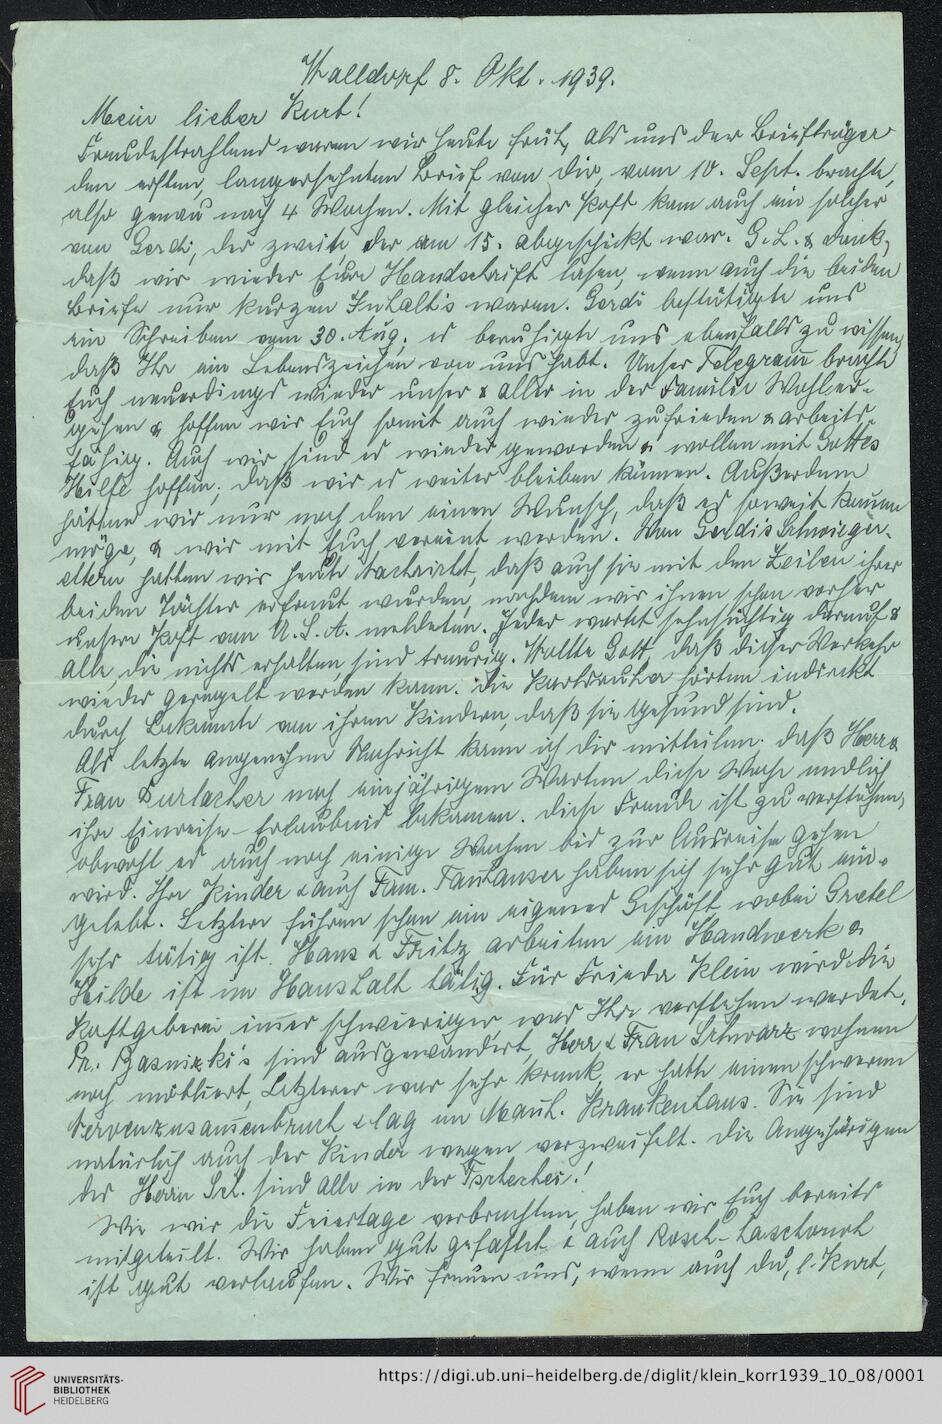 Walldorf 8. Okt. 1939.
Mein lieber Kurt!
Freudestrahlend waren wir heute früh, als uns der Briefträger
den ersten, langersehnten Brief von dir, vom 10. Sept. brachte,
also genau nach 4 Wochen. Mit gleicher Post kam auch ein solcher
von Gerdi, der zweite, der am 15. abgeschickt war. G. L. & Dank,
daß wir wieder Eure Handschrift lasen, wenn auch die beiden
Briefe nur kurzen Inhalt's waren. Gerdi bestätigte uns
ein Schreiben vom 30. Aug. es beruhigte uns ebenfalls zu wissen,
daß Ihr ein Lebenszeichen von uns habt. Unser Telegramm brachte
Euch neuerdings wieder unser & aller in der Familie Wohler-
gehen & hoffen wir Euch somit auch wieder zufrieden & arbeits-
fähig. Auch wir sind es wieder geworden & wollen mit Gottes
Hilfe hoffen, daß wir es weiter bleiben können. Außerdem
hätten wir nur noch den einen Wunsch, daß es soweit kommen
möge, & wir mit Euch vereint werden. Von Gerdi's Schwieger-
eltern hatten wir heute Nachricht, daß auch sie mit den Zeilen ihrer
beiden Töchter erfreut wurden, nachdem wir ihnen schon vorher
unsere Post von U. S. A. meldeten. Jeder wartet sehnsüchtig darauf &
alle, die nichts erhalten, sind traurig. Wollte Gott, daß dieser Verkehr
wieder geregelt werden kann. Die Karlsruher hörten indirekt
durch Bekannte von ihren Kindern, daß sie gesund sind.
Als letzte angenehme Nachricht kann ich dir mitteilen, daß Herr &
Frau Durlacher nach einjährigem Warten diese Woche endlich
ihre Einreise-Erlaubnis bekamen. Diese Freude ist zu verstehen,
obwohl es auch noch einige Wochen bis zur Ausreise gehen
wird. Ihre Kinder & auch Fam. Tanhauser haben sich sehr gut ein-
gelebt. Letztere führen schon ein eigenes Geschäft, wobei Gretel
sehr tätig ist. Hans & Fritz arbeiten ein Handwerk &
Hilde ist im Haushalt tätig. Für Frieda Klein wird die
Kostgeberei immer schwieriger, was Ihr verstehen werdet.
Pr. Basnizki's sind ausgewandert, Herr & Frau Schwarz wohnen
noch möbliert, Letzterer war sehr krank, er hatte einen schweren
Nervenzusammenbruch & lag im Mannh. Krankenhaus. Sie sind
natürlich auch der Kinder wegen verzweifelt. Die Angehörigen
des Herrn Sch. sind alle in der Tschechei!
Wie wir die Feiertage verbrachten, haben wir Euch bereits
mitgeteilt. Wir haben gut gefastet & auch Rosch-Haschonoh
ist gut verlaufen. Wir freuen uns, wenn auch du, l. Kurt,
UNIVERSITÄTS-
BIBLIOTHEK
HEIDELBERG
https://digi.ub.uni-heidelberg.de/diglit/klein_korr1939_10_08/0001